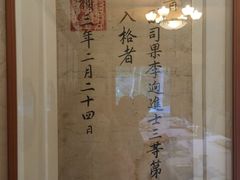 司果李迥進士三等第
入格者
頤三年二月二十四日